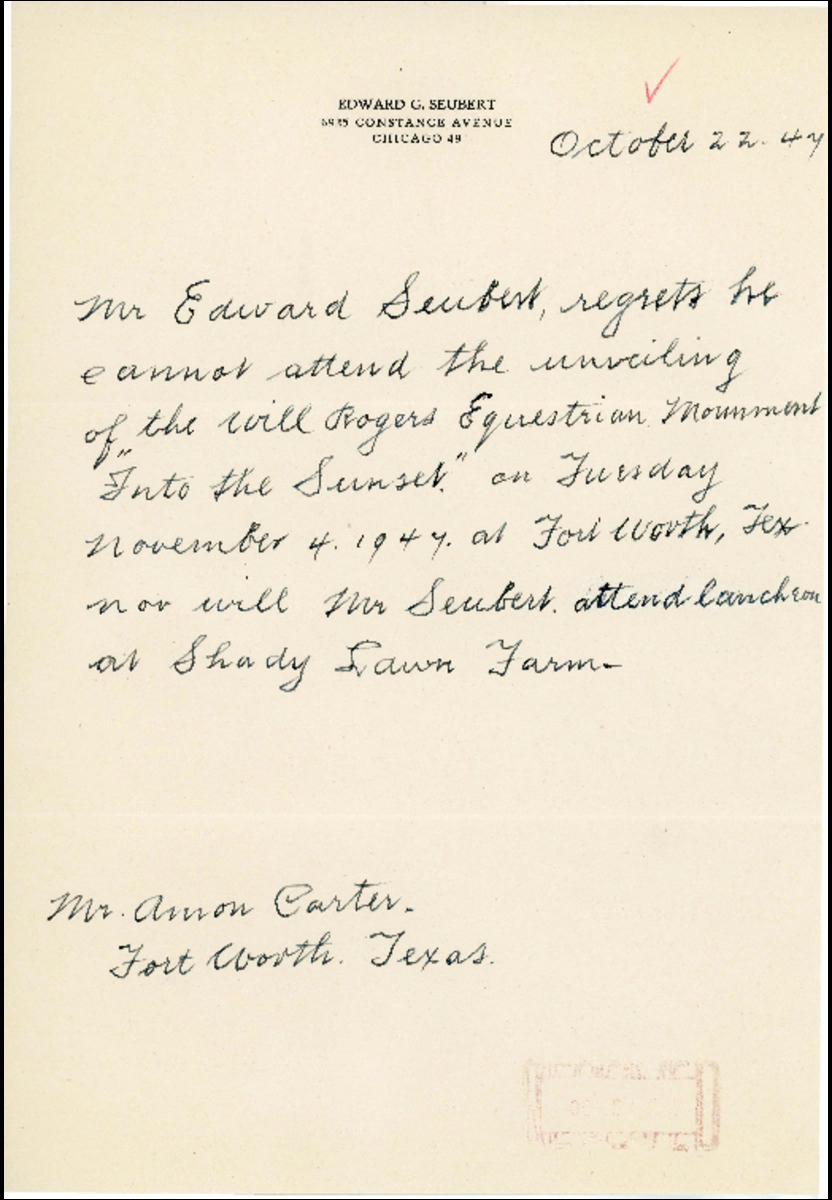 EDWARD G. SEUBERT
CONSTANCE AVENUE
CHICAGO 49
October 22. 47
Mr Edward Seubert, regrets he
cannot attend the unveiling
of the Will Rogers Equestrian Monument
"Into the Sunset." on Tuesday
November 4. 1947. at Fort Worth, Tex.
nor will Mr Seubert. attend luncheon
at Shady Lawn Farm-
Mr. Amon Carter.
Fort Worth. Texas.